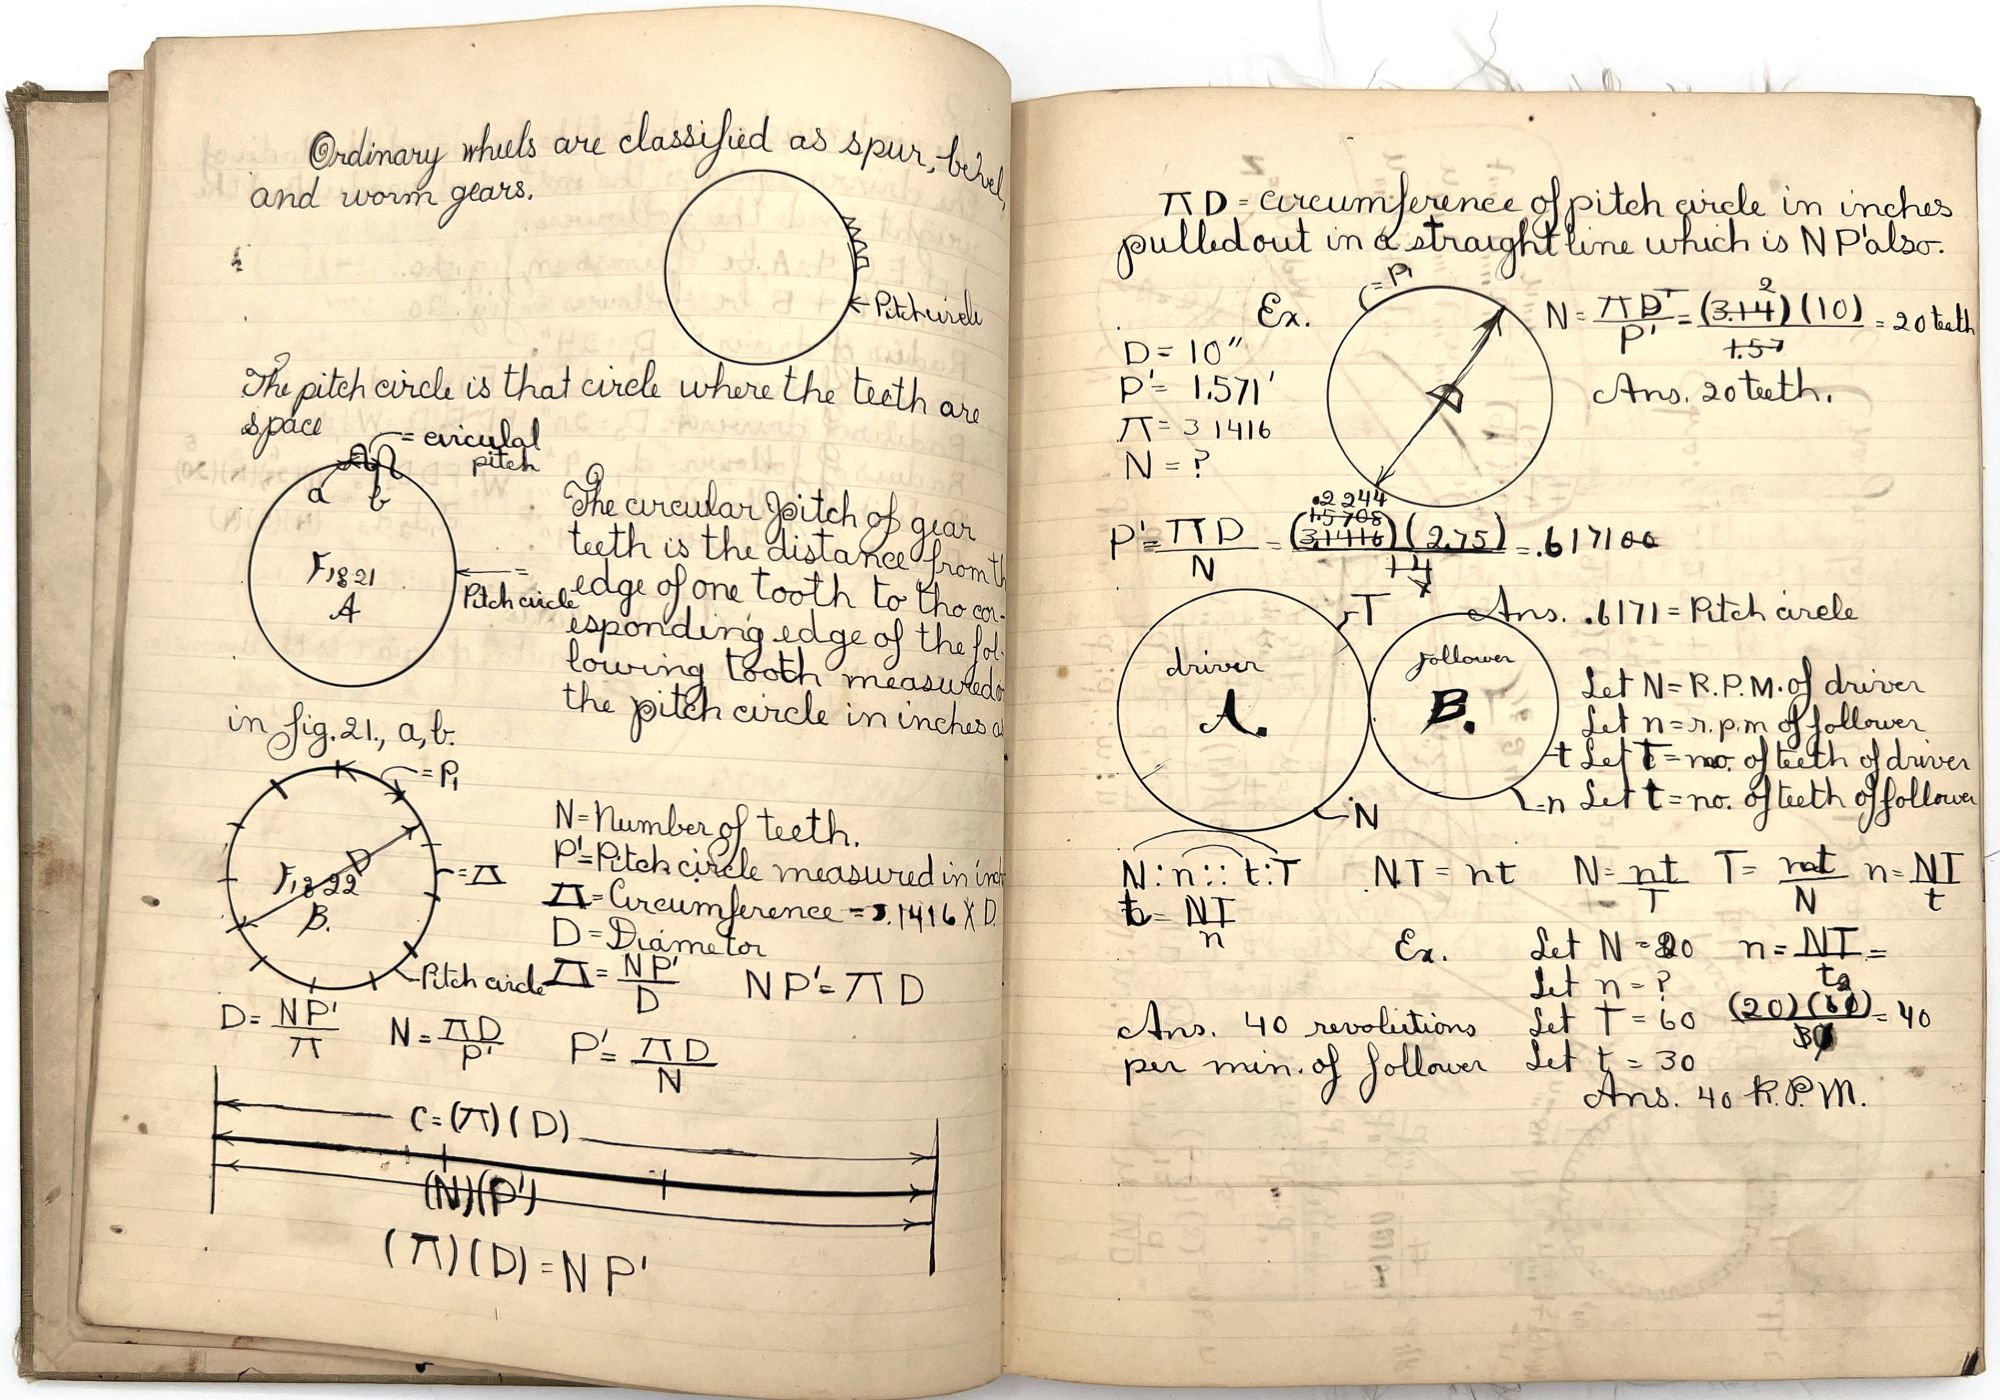 Ordinary wheels are classified as spur, bevel,
and worm gears.
Pitch circle
The pitch circle is that circle where the teeth are
space
= circulal
pitch
a b
Fig 21
A
Pitch circle
The circular pitch of gear
teeth is the distance from th
edge of one tooth to the cor-
esponding edge of the fol-
lowing tooth measured o
the pitch circle in inches a
in fig. 21., a, b.
= P1
D
Fig 22
B.
= π
Pitch circle
N = Number of teeth.
P' = Pitch circle measured in inch
π = Circumference = 3.1416 X D.
D = Diameter
π = NP'/D NP' = πD
D = NP'/π N = πD/P' P' = πD/N
C = (π)(D)
(N)(P')
(π)(D) = NP'
πD = circumference of pitch circle in inches
pulled out in a straight line which is NP' also.
= P1
Ex.
N = πD/P' = (3.14)(10)/1.57 = 20 teeth
2
D = 10"
P' = 1.571'
π = 3 1416
N = ?
Ans. 20 teeth.
.2244
1.5708
P' = πD/N = (3.1416)(2.75)/14 = .617100
7
Ans. .6171 = Pitch circle
T
driver
A.
N
follower
B.
t
n
Let N = R.P.M. of driver
Let n = r.p.m of follower
Let T = no. of teeth of driver
Let t = no. of teeth of follower
N : n :: t : T NT = nt N = nt/T T = nt/N n = NT/t
t = NT/n
Ex.
Let N = 20 n = NT/t =
Let n = ?
Let T = 60 (20)(60)/30 = 40
2
Let t = 30
Ans. 40 R.P.M.
Ans. 40 revolutions
per min. of follower